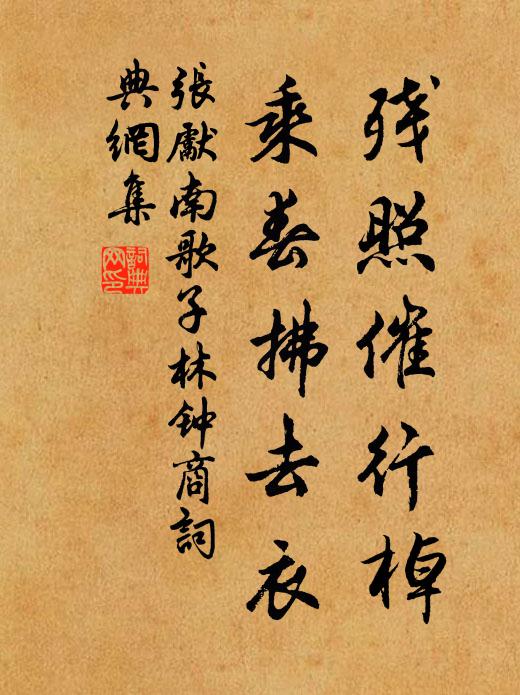 残照催行棹
乘春拂去衣
張獻南歌子林钟商詞
典網集
詞典
网印